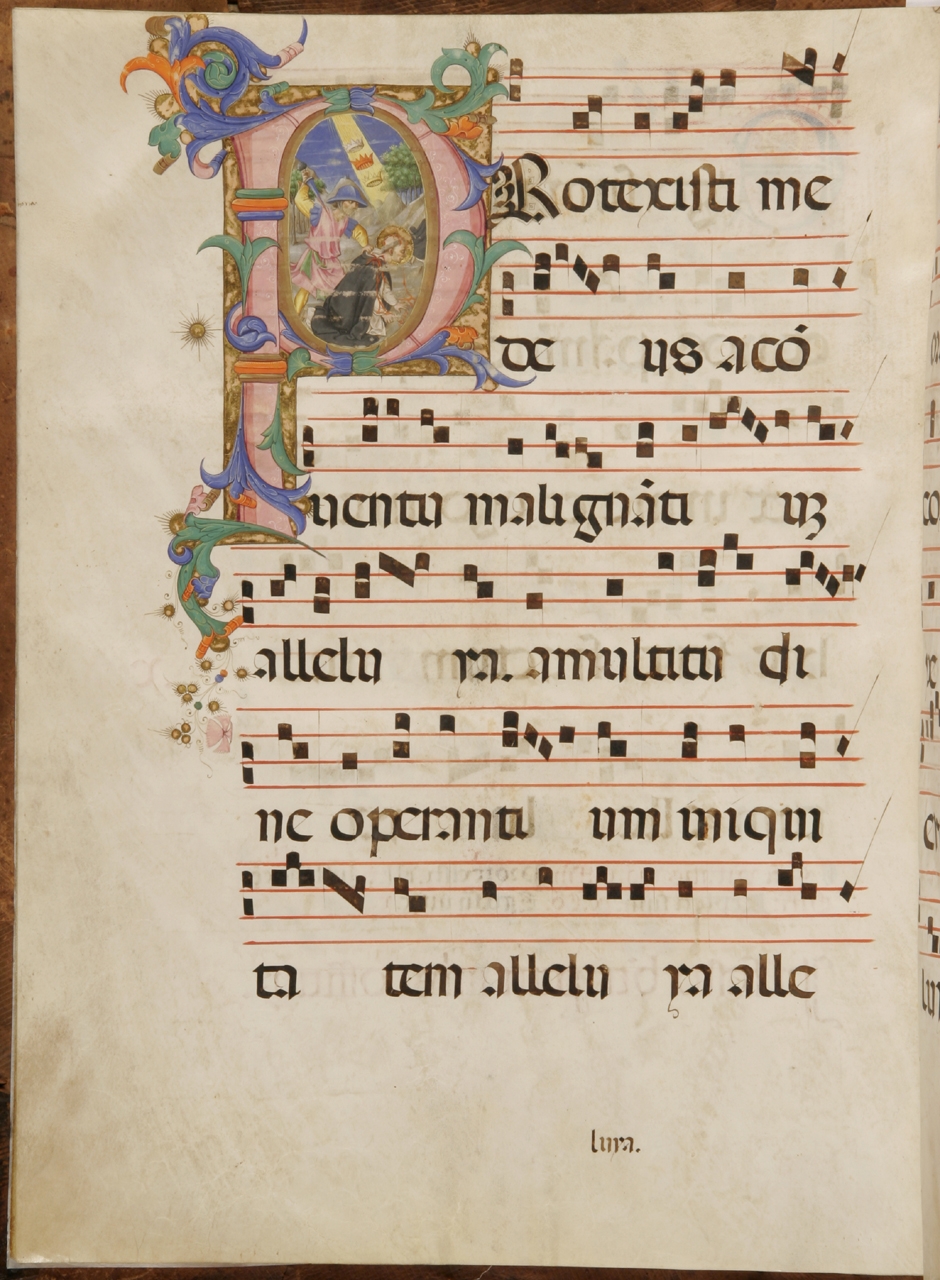 PRotexisti me
de us a cō
uentu malignāti uꝫ
allelu ya. a multitu di
ne operanti um iniqui
ta tem allelu ya alle
luya.